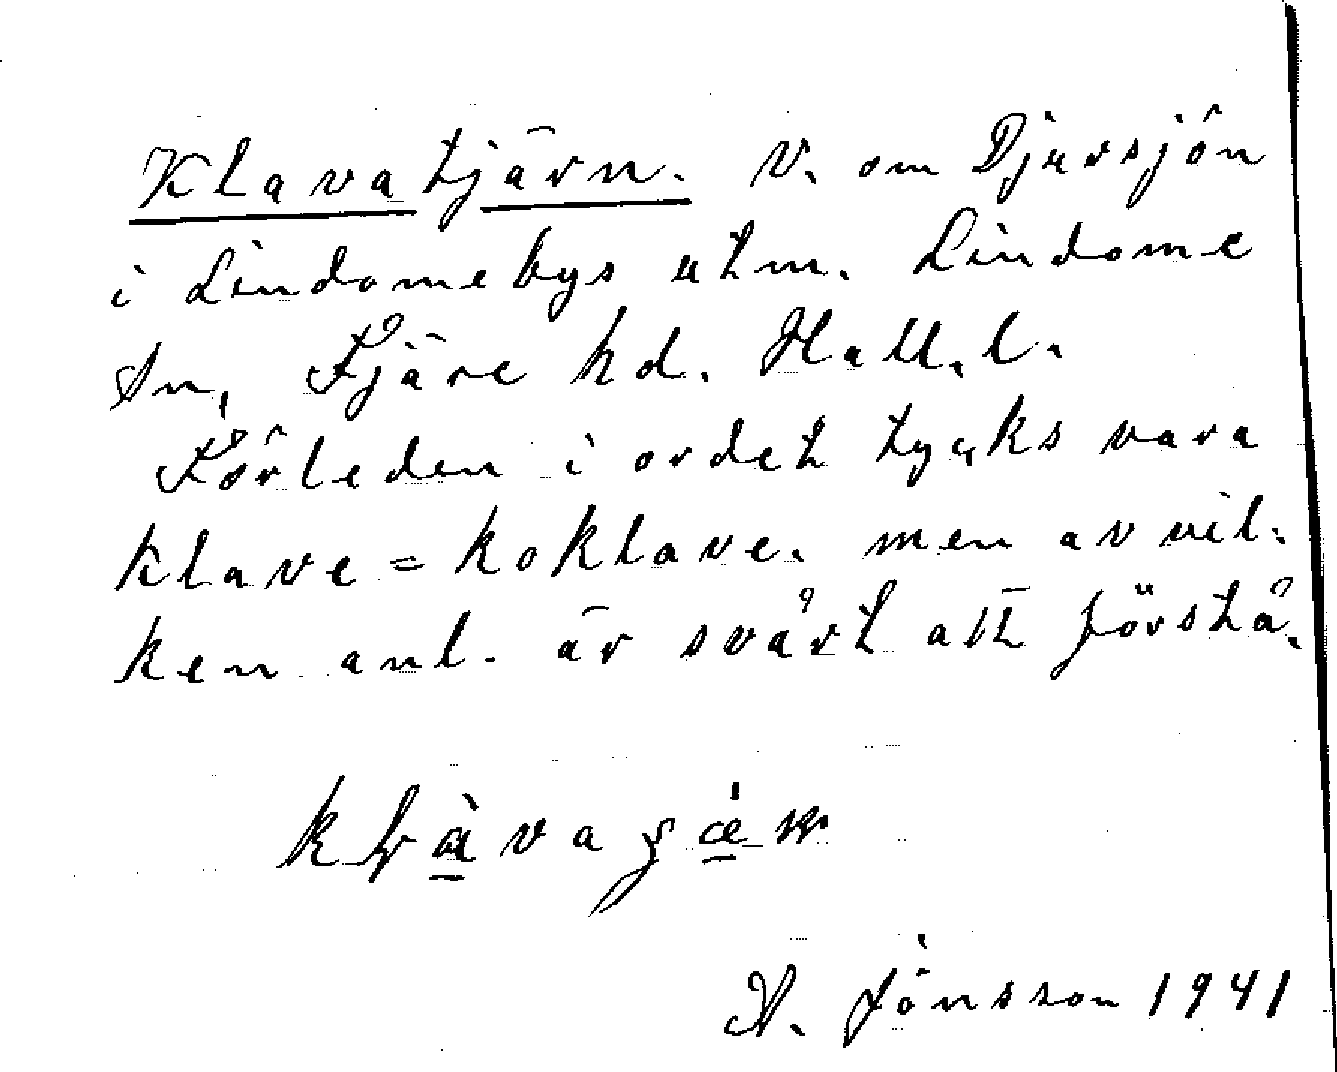 Klavatjärn. V. om Djursjön
i Lindome bys utm. Lindome
sn, Fjäre hd. Hall. l.
Förleden i ordet tycks vara
klave = koklave. men av vil-
ken anl. är svårt att förstå.
A. Jönsson 1941